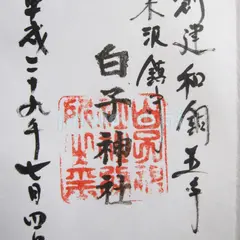 創建和銅五年
米沢鎮守
白子神社
平成二十九年七月四日